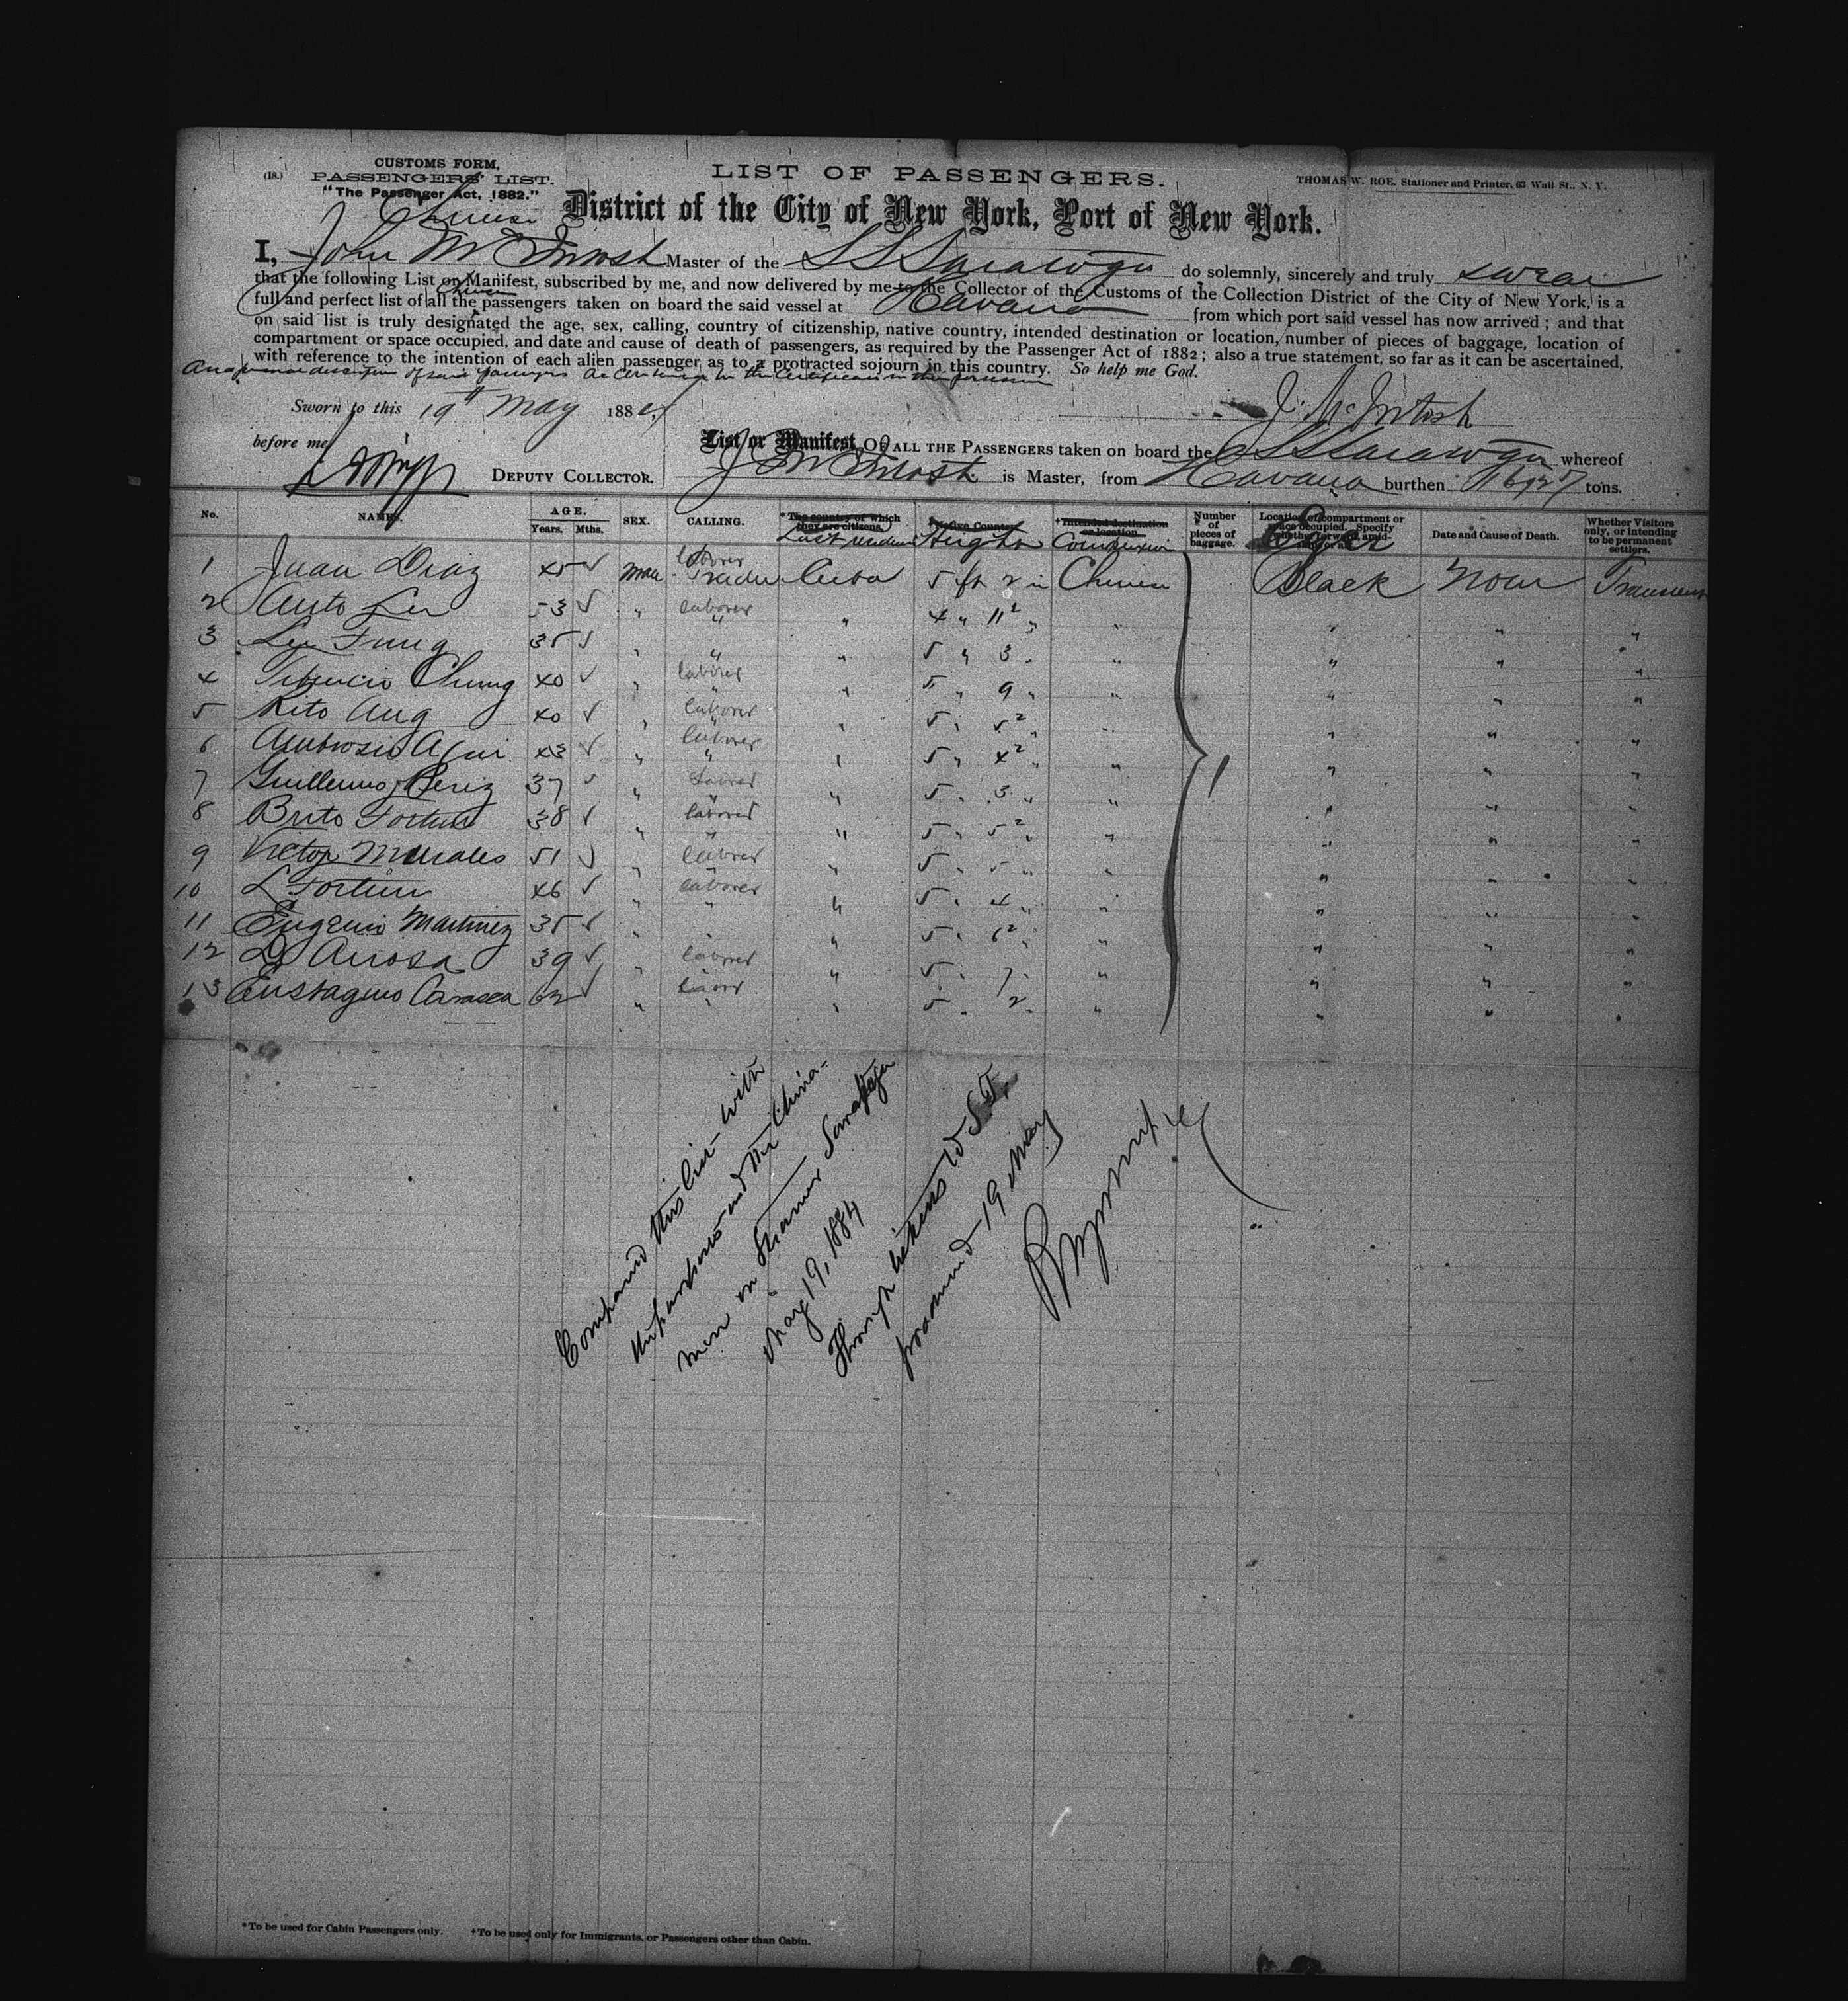 (18.)
CUSTOMS FORM,
PASSENGERS' LIST.
"The Passenger Act, 1882."
LIST OF PASSENGERS.
THOMAS W. ROE, Stationer and Printer, 63 Wall St., N. Y.
Chinese
District of the City of New York, Port of New York.
I, John McIntosh Master of the SS Saratoga do solemnly, sincerely and truly swear
that the following List or Manifest, subscribed by me, and now delivered by me to the Collector of the Customs of the Collection District of the City of New York, is a
full and perfect list of all the Chinese passengers taken on board the said vessel at Havana from which port said vessel has now arrived; and that
on said list is truly designated the age, sex, calling, country of citizenship, native country, intended destination or location, number of pieces of baggage, location of
compartment or space occupied, and date and cause of death of passengers, as required by the Passenger Act of 1882; also a true statement, so far as it can be ascertained,
with reference to the intention of each alien passenger as to a protracted sojourn in this country. So help me God.
Sworn to this 19th May 1884
J. McIntosh
before me
DEPUTY COLLECTOR.
List or Manifest OF ALL THE PASSENGERS taken on board the SS Saratoga whereof
J McIntosh is Master, from Havana burthen tons.
No. NAMES. AGE. Years. Mths. SEX. CALLING. *The country of which they are citizens. Native Country Height †Intended destination or location. Complexion Number of pieces of baggage. Location of compartment or space occupied. Specify whether forward, amidships or aft. Date and Cause of Death. Whether Visitors only, or intending to be permanent settlers.
1 Juan Diaz 45 ✓ Male laborer Trader Cuba 5 ft 2 in Chinese 1 Black None Transient
2 53 ✓ " laborer " " 4 " 11² " " " " "
3 Lee Fung 35 ✓ " " " 5 " 3 " " " " "
4 Tiburcio Chung 40 ✓ " laborer " " 5 " 9 " " " " "
5 Rito Aug 40 ✓ " laborer " " 5 " 5² " " " " "
6 Ambrosio 43 ✓ " laborer " " 5 " 4² " " " " "
7 Guillermo Perez 37 ✓ " laborer " " 5 " 3 " " " " "
8 Brito Fortun 38 ✓ " laborer " " 5 " 5² " " " " "
9 Victor Morales 51 ✓ " laborer " " 5 " " " " " "
10 L Fortun 46 ✓ " laborer " " 5 " 4 " " " " "
11 Eugenio Martinez 35 ✓ " " " 5 " 6² " " " " "
12 39 ✓ " laborer " 5 " 1 " " " " "
13 62 ✓ " laborer " " 5 " 2 " " " " "
Compared this list with
and the China-
men on Steamer Saratoga
May 19, 1884
Through tickets to S.F.
produced 19 May
*To be used for Cabin Passengers only. †To be used only for Immigrants, or Passengers other than Cabin.